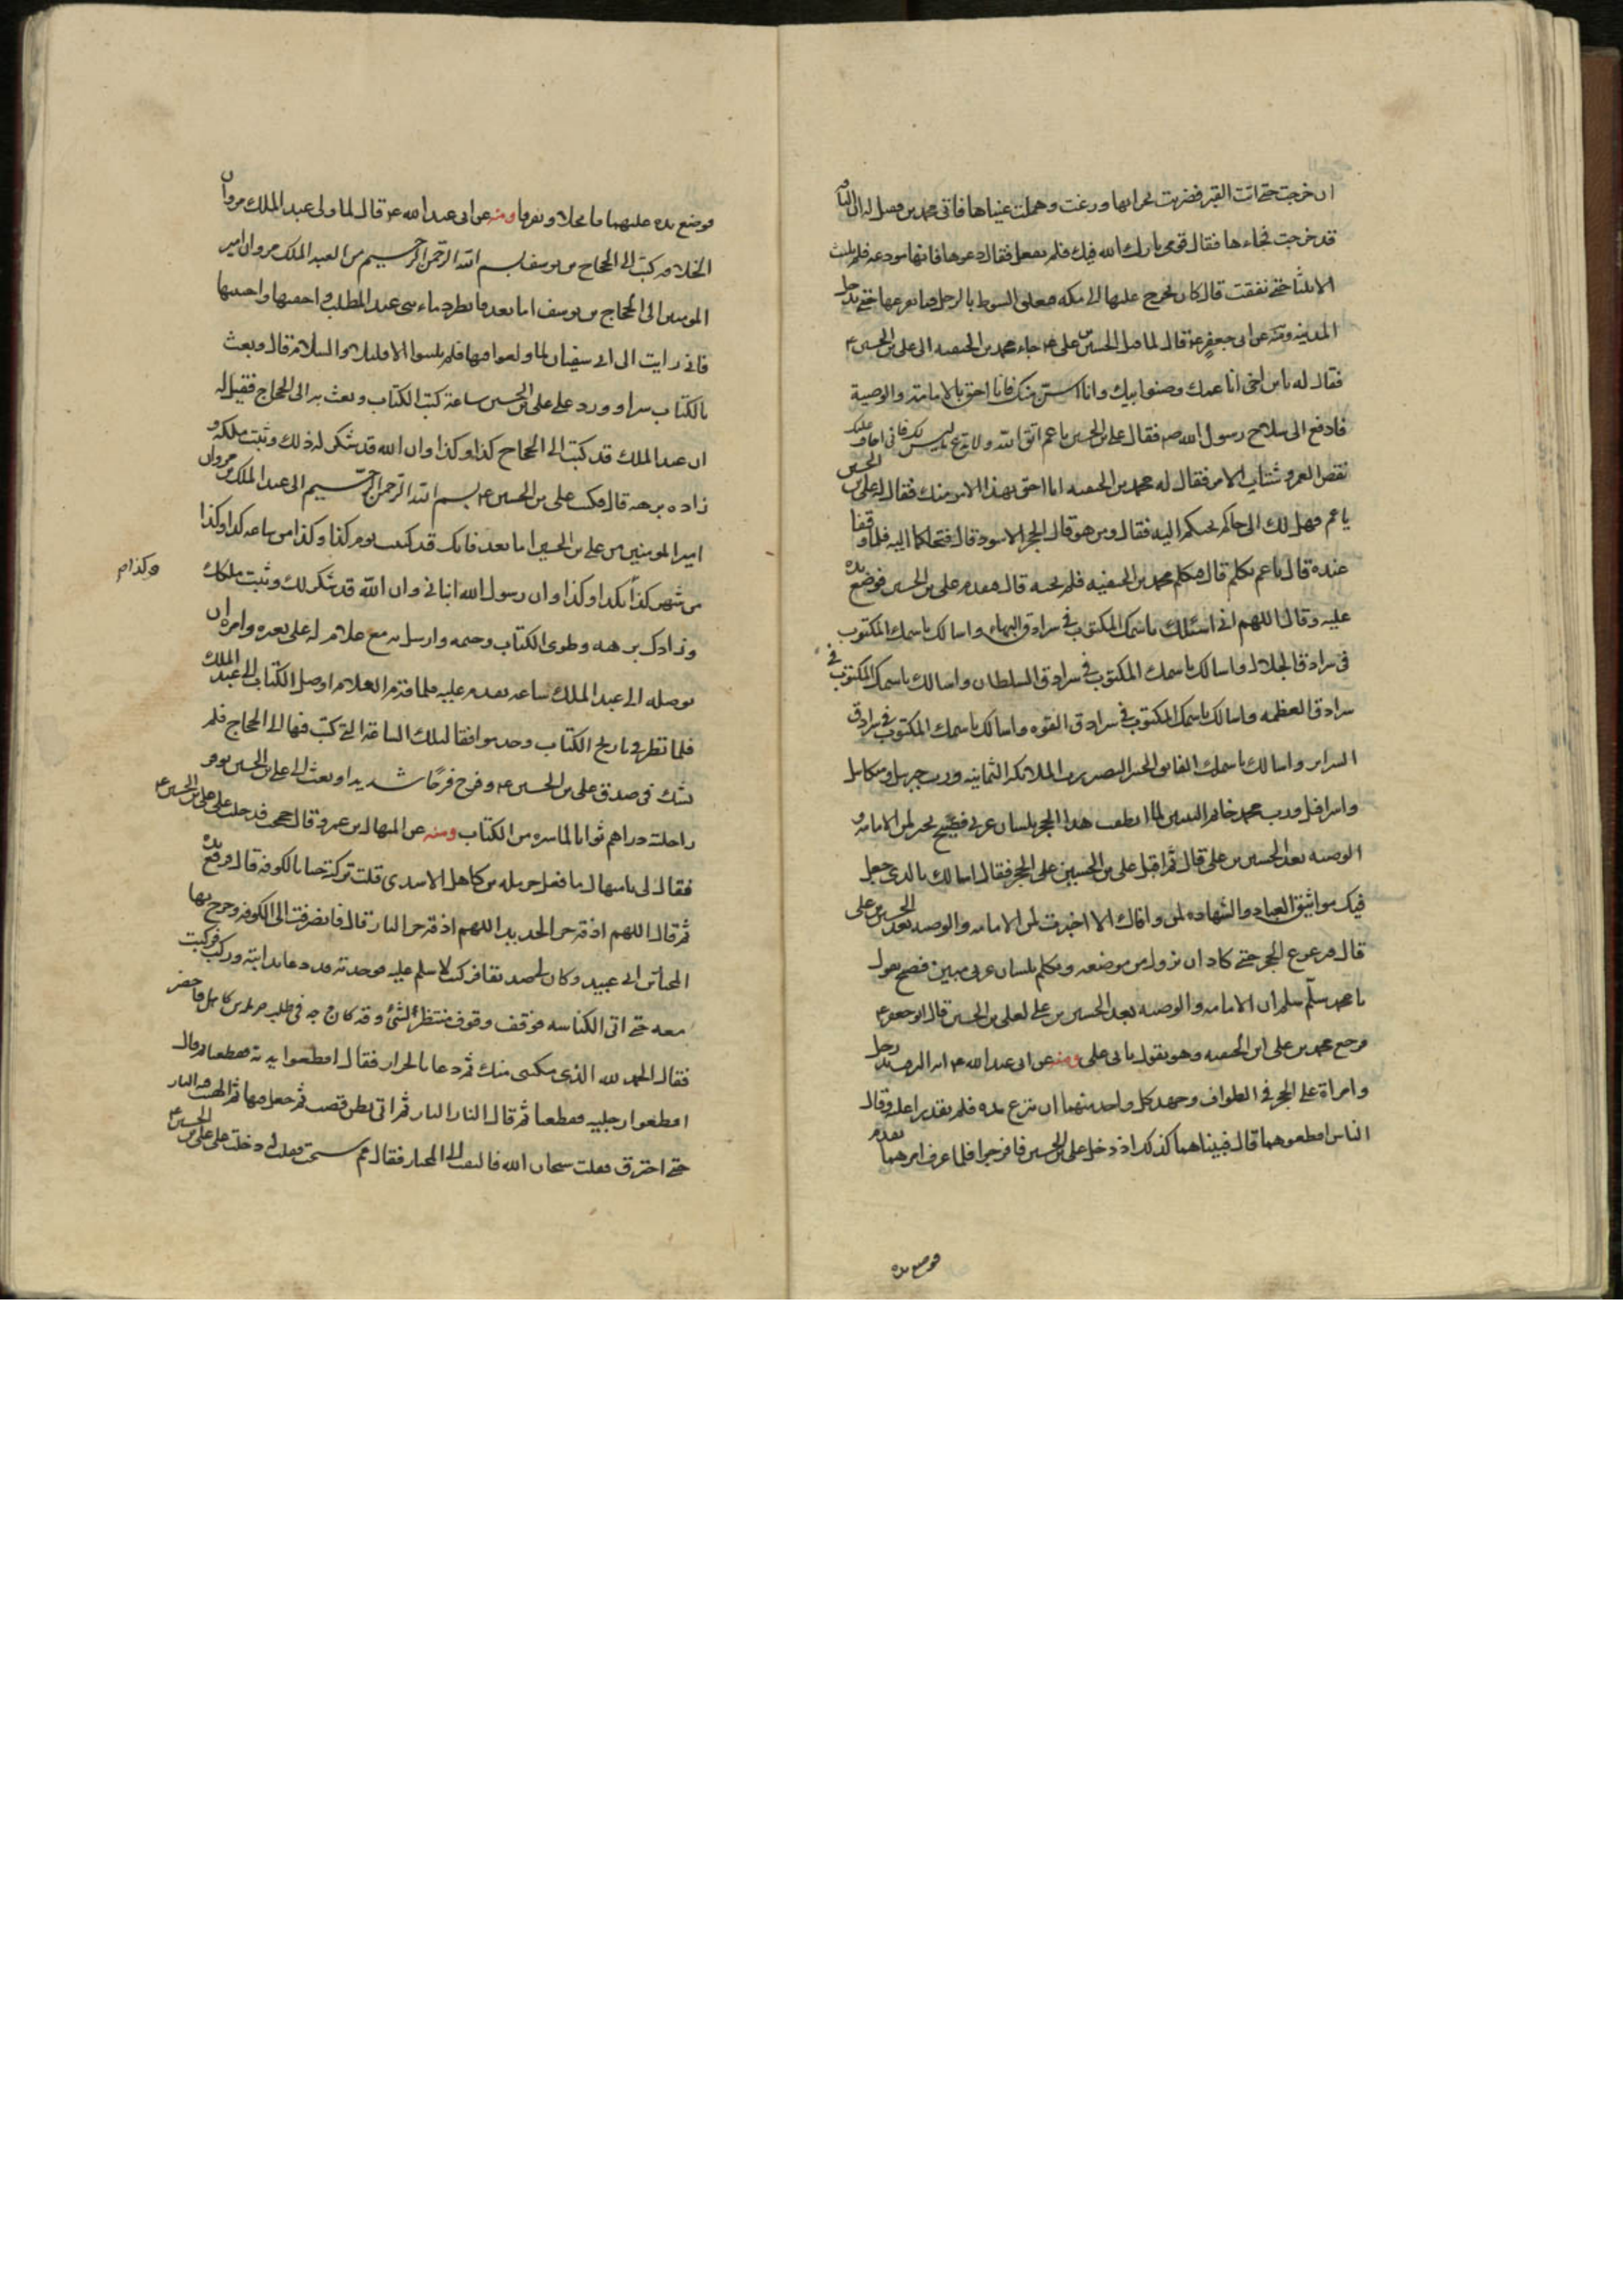 ان خرجت حتى اتت القبر فضربت بجرانها ورغت وهملت عيناها فاتى محمد بن فقيل له ان الناقة
قد خرجت فجاءها فقال قومى بارك الله فيك فلم تفعل فقال دعوها فانها مودعه فلم تلبث
الا ثلثا حتى نفقت قال كان يخرج عليها الى مكه فيعلق السوط بالرحل فما يقرعها حتى يدخل
المدينه ومنه عن ابى جعفر ع قال لما قتل الحسين بن على ع جاء محمد بن الحنفيه الى على بن الحسين ع
فقال له يا بن اخى انا عمك وصنو ابيك وانا اسن منك فانا احق بالامامة والوصية
فادفع الى سلاح رسول الله ص فقال على بن الحسين يا عم اتق الله ولا تدع ما ليس لك فانى اخاف عليك
نقص العمر وشتات الامر فقال له محمد بن الحنفيه انا احق بهذا الامر منك فقال له على بن الحسين
يا عم فهل لك الى حاكم نحتكم اليه فقال ومن هو قال الحجر الاسود قال فتحاكما اليه فلما وقفا
عنده قال يا عم تكلم قال فتكلم محمد بن الحنفيه فلم يجبه قال فتقدم على بن الحسين فوضع يده
عليه وقال اللهم انى اسئلك باسمك المكتوب فى سرادق البهاء واسالك باسمك المكتوب
فى سرادق الجلال واسالك باسمك المكتوب فى سرادق السلطان واسالك باسمك المكتوب فى
سرادق العظمه واسالك باسمك المكتوب فى سرادق القوه واسالك باسمك المكتوب فى سرادق
السرائر واسالك باسمك الفائق الخبير البصير رب الملائكه الثمانيه ورب جبريل وميكائيل
واسرافيل ورب محمد خاتم النبيين لما انطقت هذا الحجر بلسان عربى فصيح يخبر لمن الامامه و
الوصيه بعد الحسين بن على قال ثم اقبل على بن الحسين على الحجر فقال اسالك بالذى جعل
فيك مواثيق العباد والشهاده لمن وافاك الا اخبرت لمن الامامه والوصيه بعد الحسين بن على
قال فتزعزع الحجر حتى كاد ان يزول من موضعه وتكلم بلسان عربى مبين فصيح يقول
يا محمد سلّم سلم ان الامامه والوصيه بعد الحسين بن على لعلى بن الحسين قال ابو جعفر ع
فرجع محمد بن على ابن الحنفيه وهو يقول بابى على ومنه عن ابى عبد الله ع انه التزقت يد رجل
وامراة على الحجر فى الطواف وجهد كل واحد منهما ان ينزع يده فلم يقدرا عليه وقال
الناس اقطعوهما قال فبينا هما كذلك اذ دخل على بن الحسين فافرجوا فلما عرف امرهما تقدم
فوضع يده
فوضع يده عليهما فانحلا وتفرقا ومنه عن ابى عبد الله ع قال لما ولى عبد الملك مروان
الخلافه كتب الى الحجاج بن يوسف بسم الله الرحمن الرحيم من العبد الملك مروان امير
المومنين الى الحجاج بن يوسف اما بعد فانظر دماء بنى عبد المطلب واحقنها واجتنبها
فانى رايت ال ابى سفيان لما ولعوا فيها فلم يلبثوا الا قليلا والسلام قال وبعث
بالكتاب سرا وورد على على بن الحسين ساعة كتب الكتاب وبعث به الى الحجاج فقيل له
ان عبد الملك قد كتب الى الحجاج كذا وكذا وان الله قد شكر له ذلك وثبت ملكه و
زاده برهه قال فكتب على بن الحسين ع بسم الله الرحمن الرحيم الى عبد الملك بن مروان
امير المومنين من على بن الحسين اما بعد فانك قد كتبت يوم كذا وكذا من ساعه كذا وكذا
من شهر كذا بكذا وكذا وان رسول الله انبانى وان الله قد شكر لك وثبت ملكك
وكذا م
وزادك برهه وطوى الكتاب وختمه وارسل به مع غلام له على بعيره وامره ان
يوصله الى عبد الملك ساعه يقدم عليه فلما قدم الغلام اوصل الكتاب الى عبد الملك
فلما نظر فى تاريخ الكتاب وجده موافقا لتلك الساعة التى كتب فيها الى الحجاج فلم
يشك فى صدق على بن الحسين ع وفرح فرحا شديدا وبعث الى على بن الحسين بوقر
راحلته دراهم ثوابا لما سره من الكتاب ومنه عن المنهال بن عمرو قال حججت فدخلت على على بن الحسين ع
فقال لى يا منهال ما فعل حرمله بن كاهل الاسدى قلت تركته حيا بالكوفه قال فرفع يده
ثم قال اللهم اذقه حر الحديد اللهم اذقه حر النار قال فانصرفت الى الكوفه وخرج بها
المختار بن ابى عبيد وكان لى صديقا فركبت لاسلم عليه فوجدته قد دعا بدابته وركب فركبت
معه حتى اتى الكناسه فوقف وقوف منتظر لشئ وقد كان وجه فى طلب حرمله بن كاهل فاحضر
فقال الحمد لله الذى مكننى منك ثم دعا بالجزار فقال اقطعوا يديه فقطعتا ثم قال
اقطعوا رجليه فقطعتا ثم قال النار النار ثم اتى بطن قصب ثم جعل فيها ثم الهبت فيه النار
حتى احترق فقلت سبحان الله فالتفت الى المختار فقال مم سبحت فقلت له دخلت على على بن الحسين ع